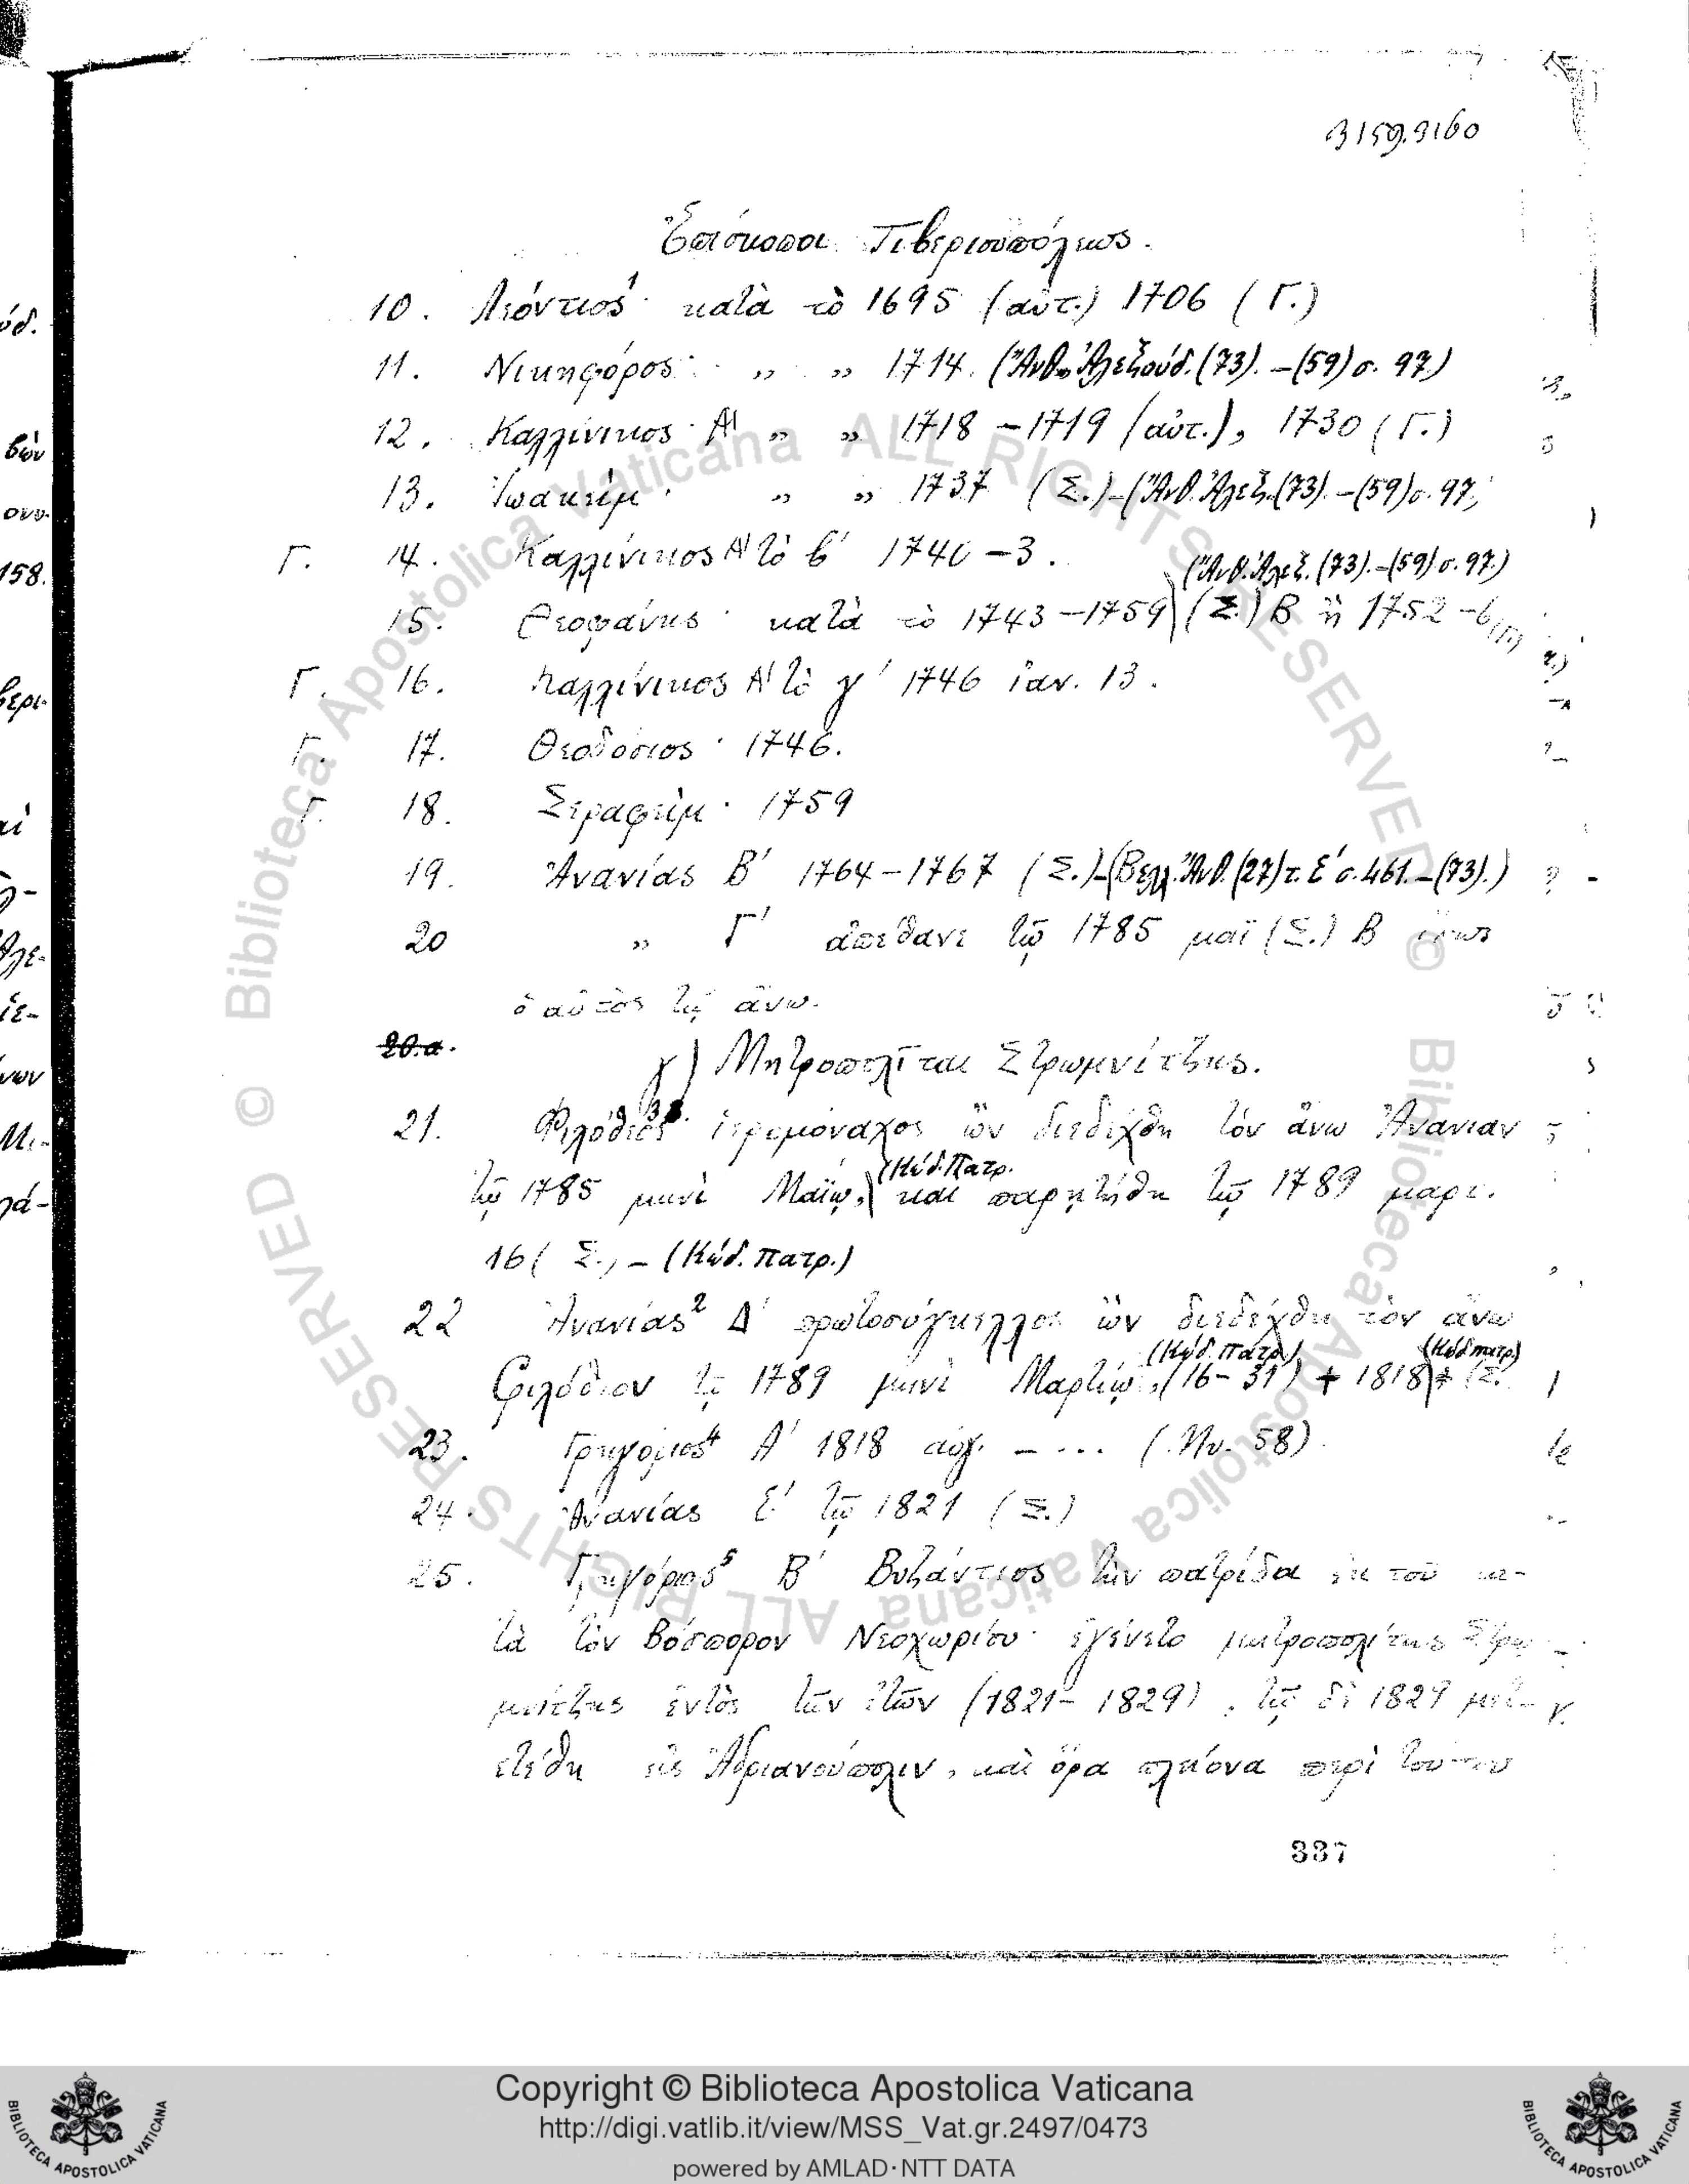 3159.3160
Ἐπίσκοποι Τιβεριουπόλεως.
10. Λεόντιος¹· κατὰ τὸ 1695 (αὐτ.) 1706 (Γ.)
11. Νικηφόρος· „ „ 1714. (Ἀνθ. Ἀλεξούδ. (73). – (59) σ. 97.)
12. Καλλίνικος· Α' „ „ 1718 – 1719 (αὐτ.), 1730 (Γ.)
13. Ἰωακείμ· „ „ 1737 (Σ.) – (Ἀνθ. Ἀλεξ. (73). – (59) σ. 97,
Γ. 14. Καλλίνικος Α' τὸ β' 1740 – 3.
(Ἀνθ. Ἀλεξ. (73). – (59) σ. 97.)
15. Θεοφάνης· κατὰ τὸ 1743 – 1759 (Σ.) Β ἢ 1752 – 6 (Γ)
Γ. 16. Καλλίνικος Α' τὸ γ' 1746 ἰαν. 13.
Γ. 17. Θεοδόσιος· 1746.
Γ. 18. Σεραφείμ· 1759
19. Ἀνανίας Β' 1764 – 1767 (Σ.) – (Βελ. Ἀνθ. (27) τ. Ε' σ. 461. – (73).)
20 „ Γ' ἀπέθανε τῷ 1785 μαΐ (Σ.) Β ἴσως
ὁ αὐτὸς τῷ ἄνω.
20.α.
γ) Μητροπολῖται Στρωμνίτζης.
21. Φιλόθεος³· ἱερομόναχος ὢν διεδέχθη τόν ἄνω Ἀνανίαν
(Κώδ. Πατρ.
τῷ 1785 μηνὶ Μαΐῳ, καὶ παρῃτήθη τῷ 1789 μαρτ.
16 (Σ.) – (Κώδ. Πατρ.)
22 Ἀνανίας² Δ' πρωτοσύγκελλος ὢν διεδέχθη τὸν ἄνω
(Κώδ. Πατρ.) (Κώδ πατρ)
Φιλόθεον τῷ 1789 μηνὶ Μαρτίῳ, (16 – 31) + 1818 (Σ.
23. Γρηγόριος⁴ Α' 1818 αὐγ. – ... (Μν. 58).
24. Ἀνανίας Ε' τῷ 1821 (Σ.)
25. Γρηγόριος⁵ Β' Βυζάντιος τὴν πατρίδα ἐκ τοῦ κα-
τὰ τὸν Βόσπορον Νεοχωρίου· ἐγένετο μητροπολίτης Στρω-
μνίτζης ἐντὸς τῶν ἐτῶν (1821 – 1829), τῷ δὲ 1829 μετ-
ετέθη εἰς Ἀδριανούπολιν, καὶ ὅρα πλείονα περὶ τούτου
337
© Biblioteca Apostolica Vaticana ALL RIGHTS RESERVED
© Biblioteca Apostolica Vaticana ALL RIGHTS RESERVED
BIBLIOTECA APOSTOLICA VATICANA
Copyright © Biblioteca Apostolica Vaticana
http://digi.vatlib.it/view/MSS_Vat.gr.2497/0473
powered by AMLAD·NTT DATA
BIBLIOTECA APOSTOLICA VATICANA